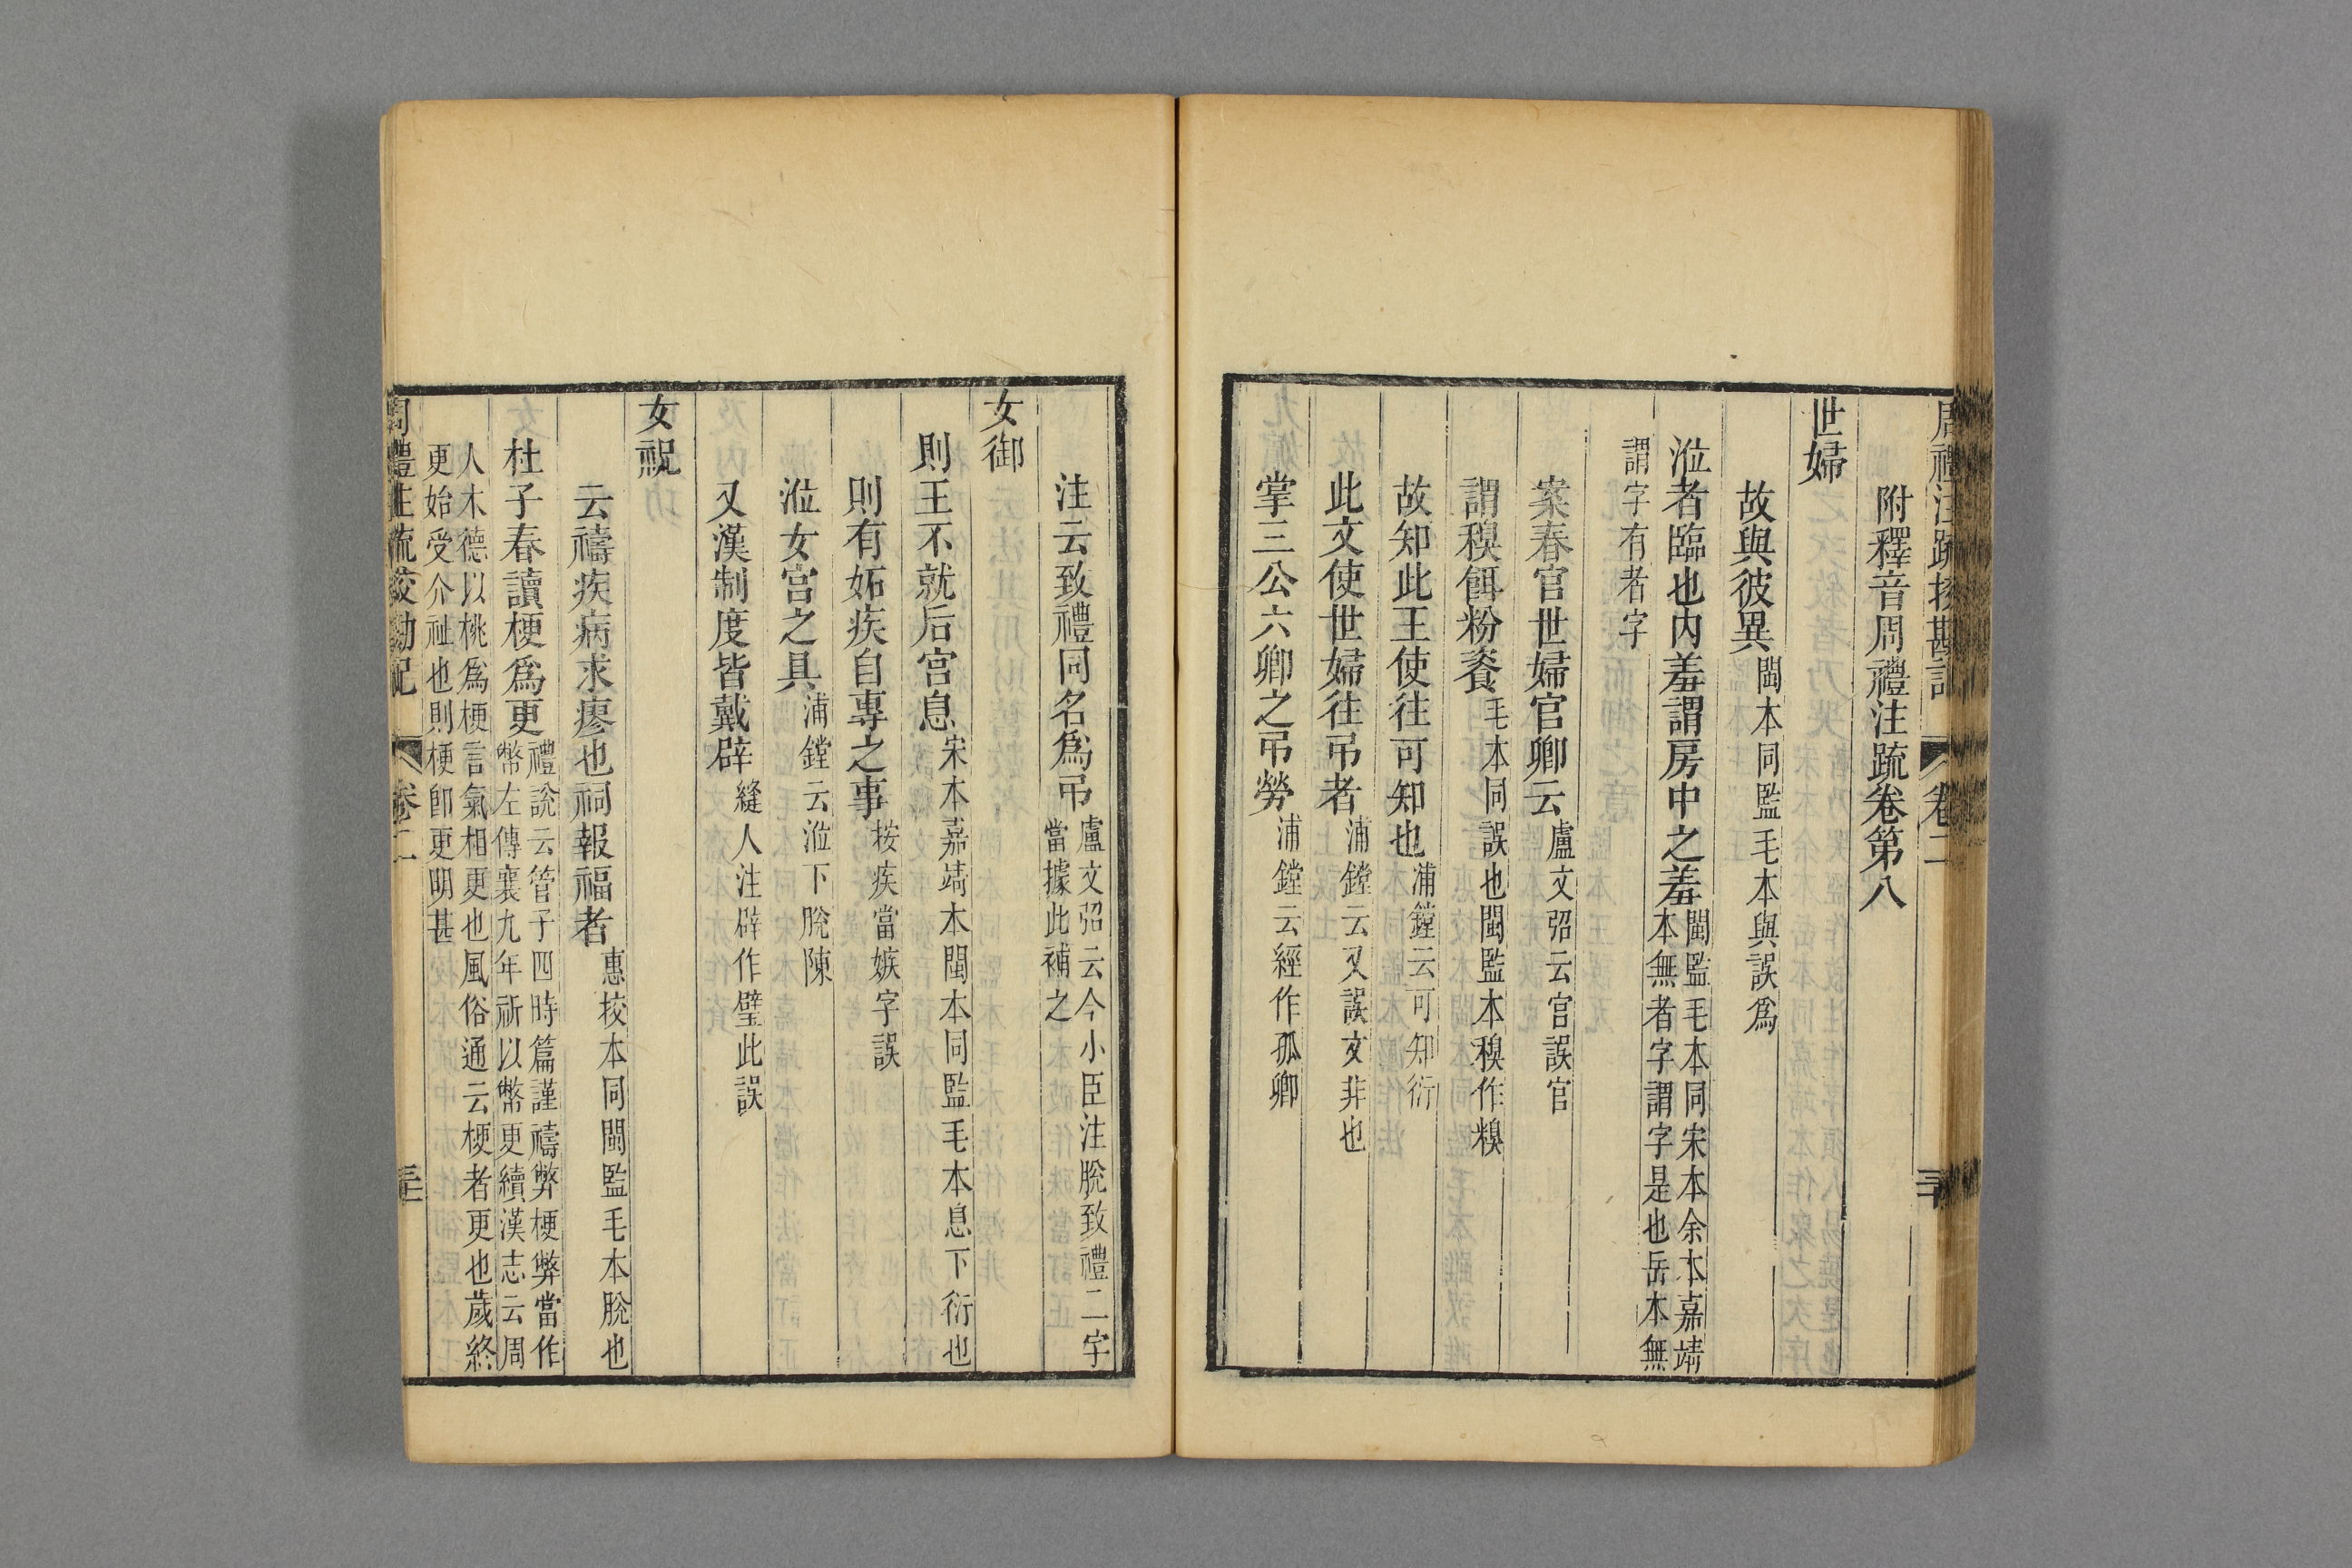 周禮注疏挍勘記 卷二
附釋音周禮注疏卷第八
世婦
故與彼異閩本同監毛本與誤爲
涖者臨也內羞謂房中之羞閩監毛本同宋本余本嘉靖本無者字謂字是也岳本無
謂字有者字
案春官世婦官卿云盧文弨云宫誤官
謂稬餌粉餈毛本同誤也閩監本稬作糗
故知此王使往可知也浦鏜云可知衍
此文使世婦往弔者浦鏜云又誤文非也
掌三公六卿之弔勞浦鏜云經作孤卿
注云致禮同名爲弔盧文弨云今小臣注脫致禮二字當據此補之
女御
則王不就后宫息宋本嘉靖本閩本同監毛本息下衍也
則有妬疾自專之事按疾當嫉字誤
涖女宫之具浦鏜云涖下脫陳
又漢制度皆戴辟縫人注辟作璧此誤
女祝
云禱疾病求瘳也祠報福者惠挍本同閩監毛本脫也
杜子春讀梗爲更禮說云管子四時篇謹禱弊梗弊當作幣左傳襄九年祈以幣更續漢志云周
人木德以桃爲梗言氣相更也風俗通云梗者更也歲終更始受介祉也則梗卽更明甚
周禮注疏挍勘記 卷二